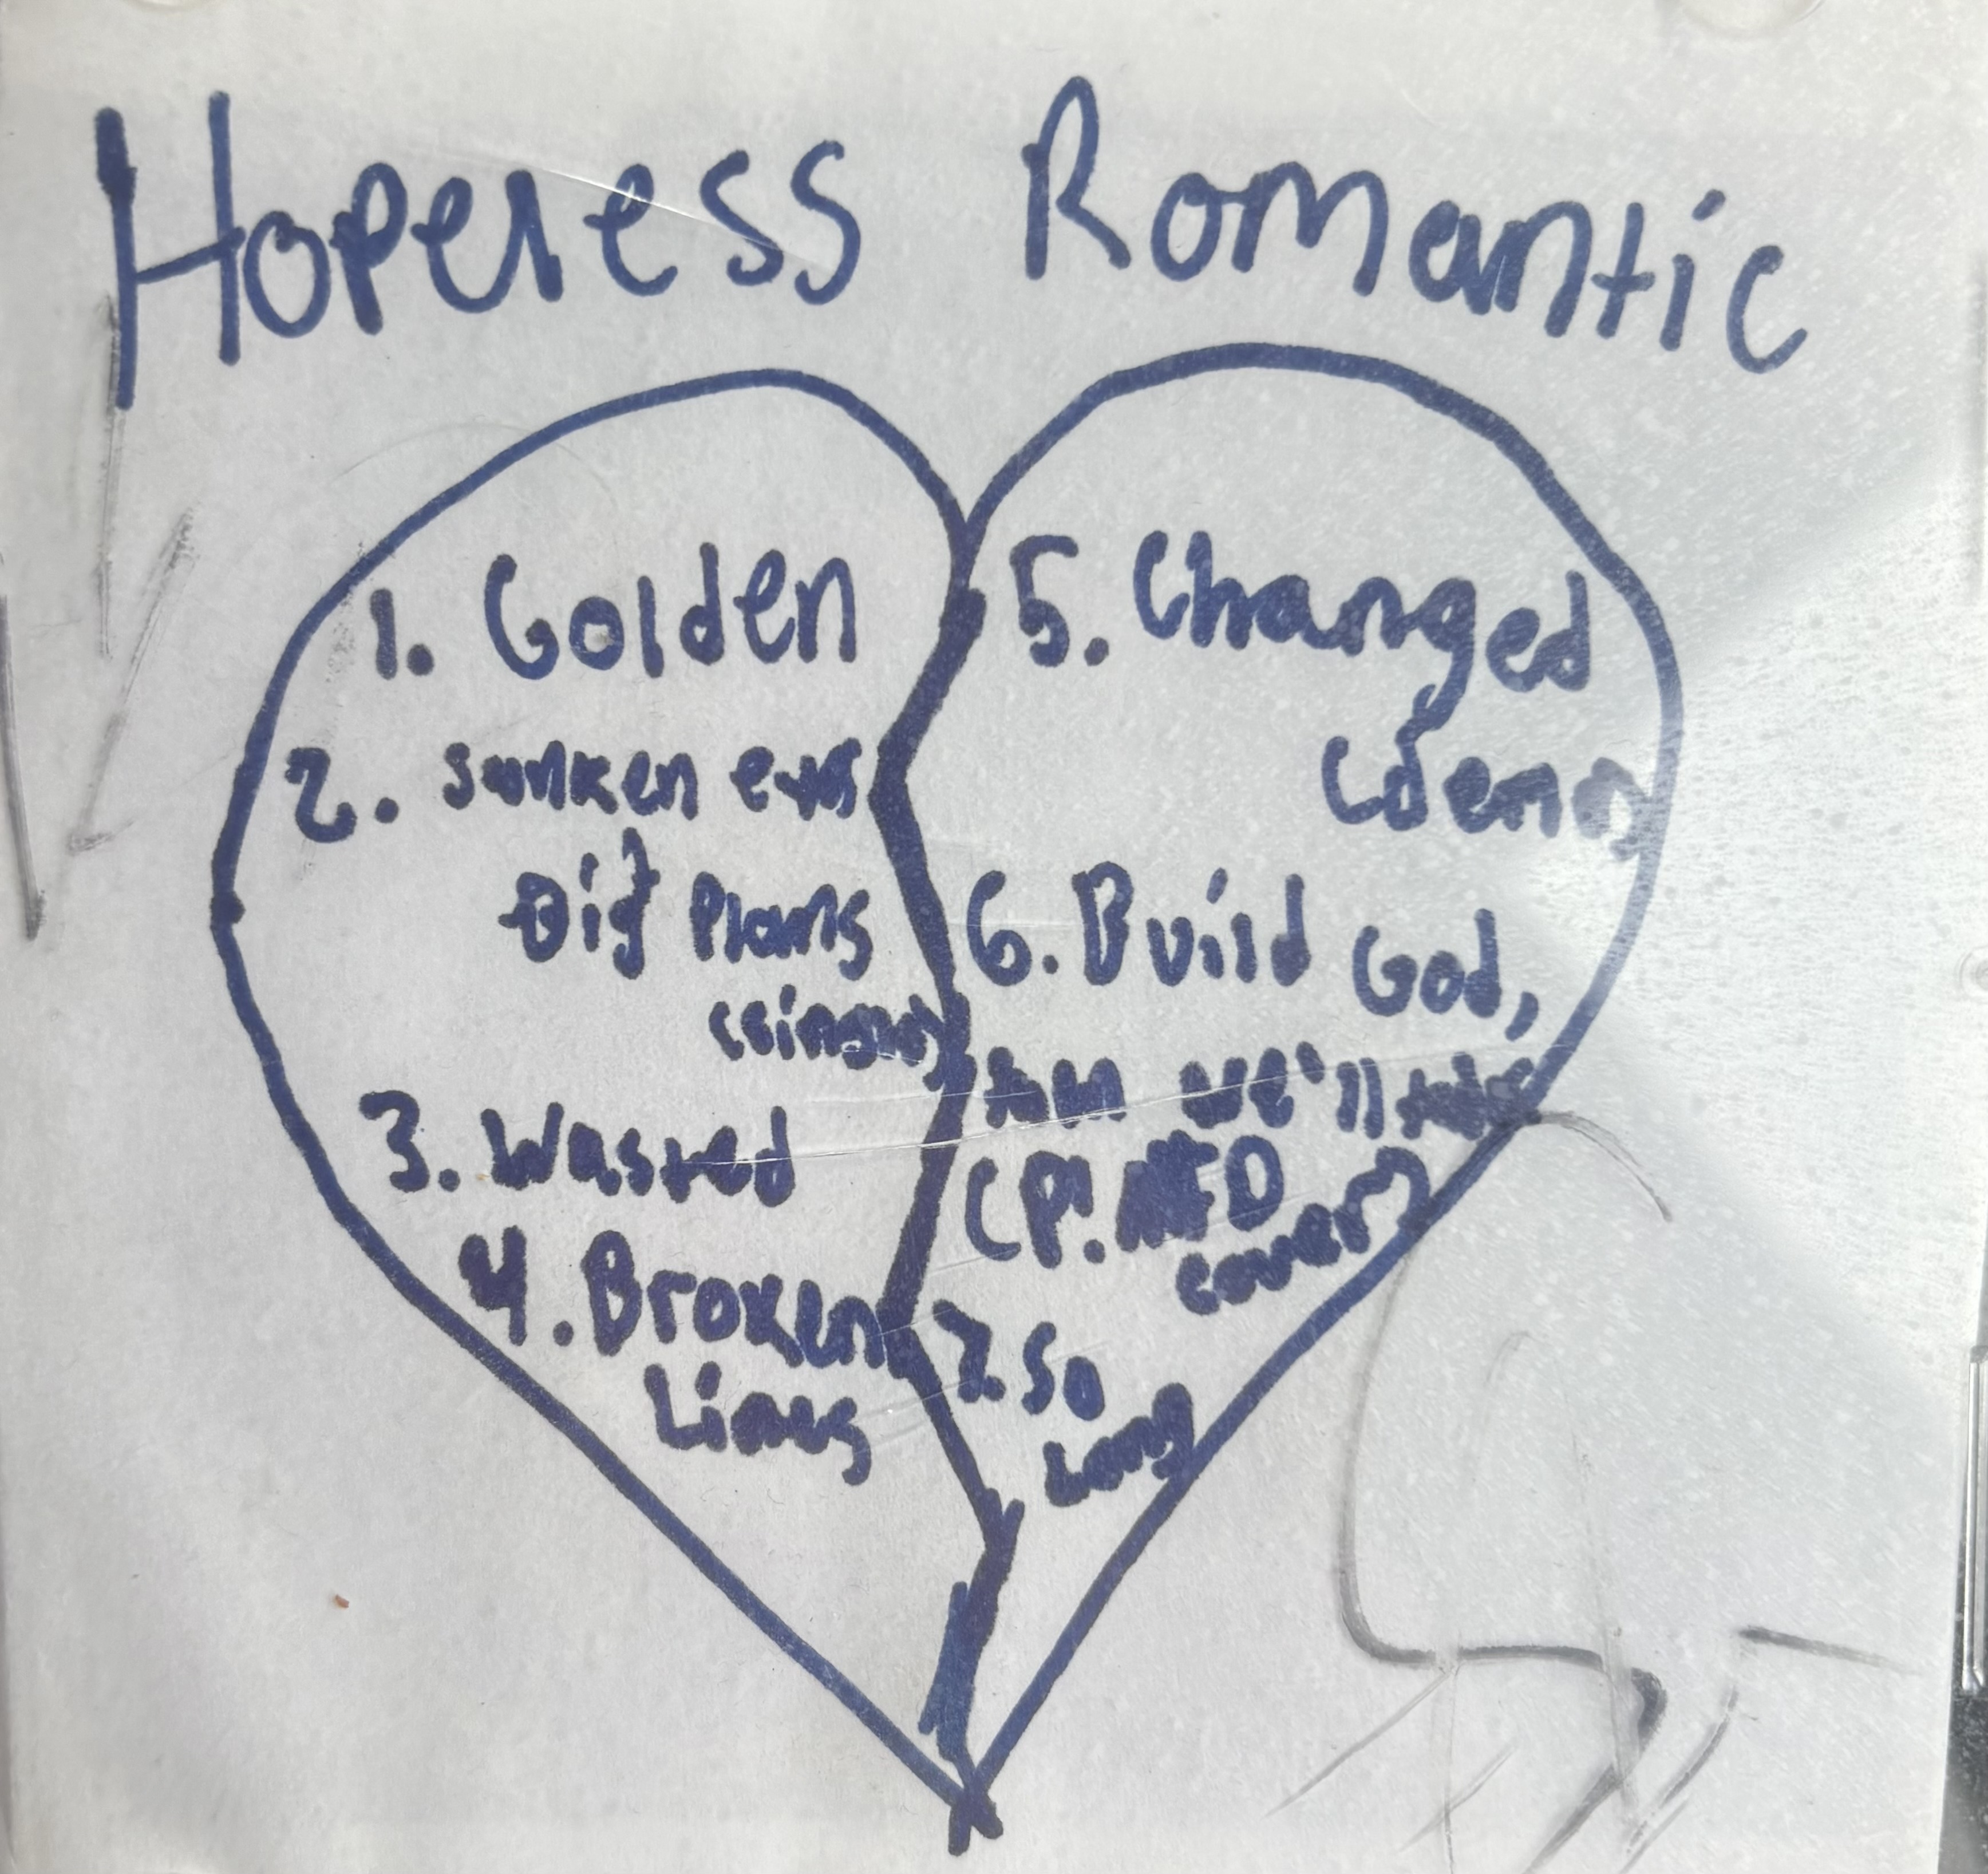 Hopeless Romantic
1. Golden
2. Sunken eyes
Big Plans
3. Wasted
4. Broken
Lines
5. Changed
(demo)
6. Build God,
then we'll talk
(P!ATD
cover)
7. So
Long